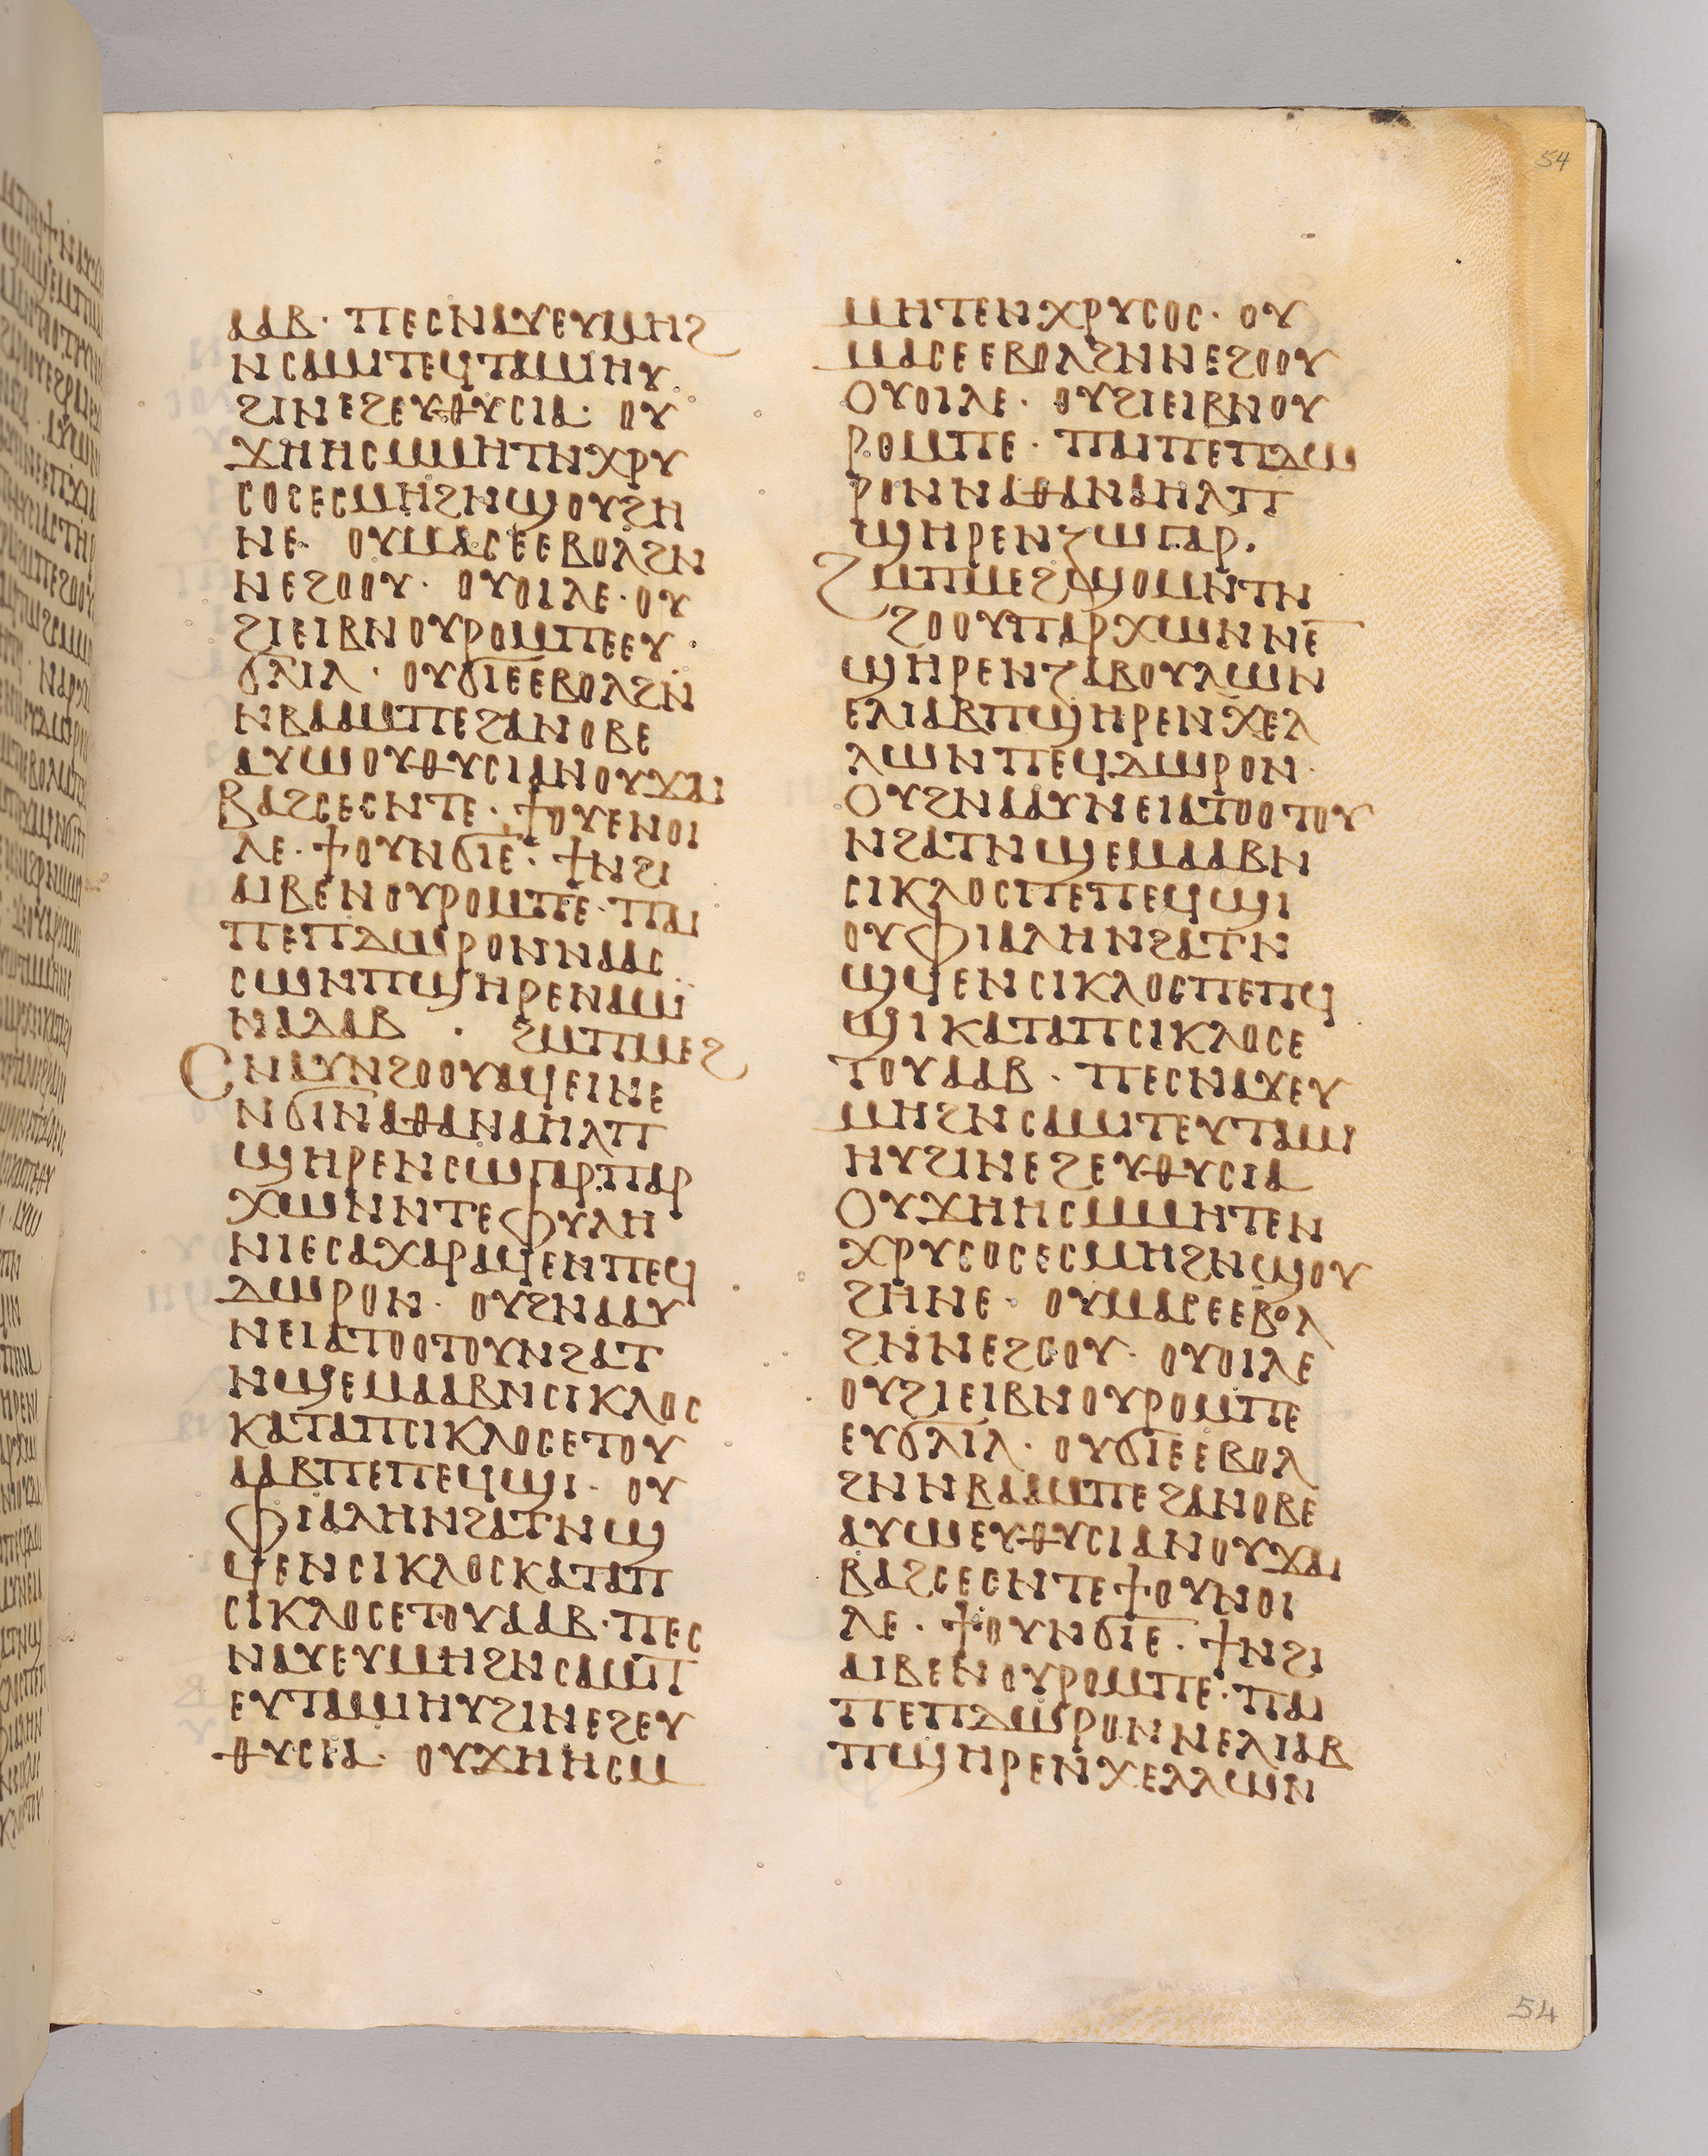 54
ⲁⲁⲃ · ⲡⲉⲥⲛⲁⲩⲉⲩⲙⲏϩ
ⲛⲥⲁⲙⲓⲧⲉϥⲧⲁⲙⲓⲏⲩ
ϩⲓⲛⲉϩⲉⲩⲑⲩⲥⲓⲁ · ⲟⲩ
ϫⲏⲏⲥⲙⲙⲏⲧⲛⲭⲣⲩ
ⲥⲟⲥⲉⲥⲙⲏϩⲛϣⲟⲩϩⲏ
ⲛⲉ · ⲟⲩⲙⲁⲥⲉⲉⲃⲟⲗϩⲛ
ⲛⲉϩⲟⲟⲩ · ⲟⲩⲟⲓⲗⲉ · ⲟⲩ
ϩⲓⲉⲓⲃⲛⲟⲩⲣⲟⲙⲡⲉⲉⲩ ·
ϭⲗⲓⲗ · ⲟⲩϭⲓⲉⲉⲃⲟⲗϩⲛ
ⲛⲃⲁⲁⲙⲡⲉϩⲁⲛⲟⲃⲉ
ⲁⲩⲱⲟⲩⲑⲩⲥⲓⲁⲛⲟⲩϫⲁⲓ
ⲃⲁϩⲥⲉⲥⲛⲧⲉ · ϯⲟⲩⲉⲛⲟⲓ
ⲗⲉ · ϯⲟⲩⲛϭⲓⲉ · ϯⲛϩⲓ
ⲁⲓⲃⲉⲛⲟⲩⲣⲟⲙⲡⲉ · ⲡⲁⲓ
ⲡⲉⲡⲇⲱⲣⲟⲛⲛⲁⲁⲥ
ⲥⲱⲛⲡϣⲏⲣⲉⲛⲁⲙⲓ
ⲛⲁⲇⲁⲃ · ϩⲙⲡⲙⲉϩ
ⲥⲛⲁⲩⲛϩⲟⲟⲩⲁϥⲉⲓⲛⲉ
ⲛϭⲓⲛⲁⲑⲁⲛⲁⲏⲗⲡ
ϣⲏⲣⲉⲛⲥⲱⲅⲁⲣ · ⲡⲁⲣ
ⲭⲱⲛⲛⲧⲉⲫⲩⲗⲏ
ⲛⲓⲉⲥⲁⲭⲁⲣⲁϥⲉⲛⲡⲉϥ
ⲇⲱⲣⲟⲛ · ⲟⲩϩⲛⲁⲁⲩ
ⲛⲉⲓⲁⲧⲟⲟⲧⲟⲩⲛϩⲁⲧ
ⲛϣⲉⲙⲁⲁⲃⲛⲥⲓⲕⲗⲟⲥ
ⲕⲁⲧⲁⲡⲥⲓⲕⲗⲟⲥⲉⲧⲟⲩ
ⲁⲁⲃⲡⲉⲡⲉϥϣⲓ · ⲟⲩ
ⲫⲓⲁⲗⲏⲛϩⲁⲧⲛϣ
ϥⲉⲛⲥⲓⲕⲗⲟⲥⲕⲁⲧⲁⲡ
ⲥⲓⲕⲗⲟⲥⲉⲧⲟⲩⲁⲁⲃ · ⲡⲉⲥ
ⲛⲁⲩⲉⲩⲙⲏϩⲛⲥⲁⲙⲓⲧ
ⲉⲩⲧⲁⲙⲓⲏⲩϩⲓⲛⲉϩⲉⲩ
ⲑⲩⲥⲓⲁ · ⲟⲩϫⲏⲏⲥⲙ
ⲙⲏⲧⲉⲛⲭⲣⲩⲥⲟⲥ · ⲟⲩ
ⲙⲁⲥⲉⲉⲃⲟⲗϩⲛⲛⲉϩⲟⲟⲩ
ⲟⲩⲟⲓⲗⲉ · ⲟⲩϩⲓⲉⲓⲃⲛⲟⲩ
ⲣⲟⲙⲡⲉ · ⲡⲁⲓⲡⲉⲡⲇⲱ
ⲣⲟⲛⲛⲁⲑⲁⲛⲁⲏⲗⲡ
ϣⲏⲣⲉⲛⲍⲱⲅⲁⲣ ·
ϩⲙⲡⲙⲉϩϣⲟⲙⲛⲧⲛ
ϩⲟⲟⲩⲡⲁⲣⲭⲱⲛⲛⲉ
ϣⲏⲣⲉⲛⲍⲁⲃⲟⲩⲗⲱⲛ
ⲉⲗⲓⲁⲃⲡϣⲏⲣⲉⲛⲭⲉⲗ
ⲗⲱⲛⲡⲉϥⲇⲱⲣⲟⲛ ·
ⲟⲩϩⲛⲁⲁⲩⲛⲉⲓⲁⲧⲟⲟⲧⲟⲩ
ⲛϩⲁⲧⲛϣⲉⲙⲁⲁⲃⲛ
ⲥⲓⲕⲗⲟⲥⲡⲉⲡⲉϥϣⲓ
ⲟⲩⲫⲓⲁⲗⲏⲛϩⲁⲧⲛ
ϣϥⲉⲛⲥⲓⲕⲗⲟⲥⲡⲉⲡϥ
ϣⲓⲕⲁⲧⲁⲡⲥⲓⲕⲗⲟⲥⲉ
ⲧⲟⲩⲁⲁⲃ · ⲡⲉⲥⲛⲁⲩⲉⲩ
ⲙⲏϩⲛⲥⲁⲙⲓⲧⲉⲩⲧⲁⲙⲓ
ⲏⲩϩⲓⲛⲉϩⲉⲩⲑⲩⲥⲓⲁ
ⲟⲩϫⲏⲏⲥⲙⲙⲏⲧⲉⲛ
ⲭⲣⲩⲥⲟⲥⲉⲥⲙⲏϩⲛϣⲟⲩ
ϩⲏⲛⲉ · ⲟⲩⲙⲁⲥⲉⲉⲃⲟⲗ
ϩⲛⲛⲉϩⲟⲟⲩ · ⲟⲩⲟⲓⲗⲉ
ⲟⲩϩⲓⲉⲓⲃⲛⲟⲩⲣⲟⲙⲡⲉ
ⲉⲩϭⲗⲓⲗ · ⲟⲩϭⲓⲉⲉⲃⲟⲗ
ϩⲛⲛⲃⲁⲁⲙⲡⲉϩⲁⲛⲟⲃⲉ
ⲁⲩⲱⲉⲩⲑⲩⲥⲓⲁⲛⲟⲩϫⲁⲓ
ⲃⲁϩⲥⲉⲥⲛⲧⲉϯⲟⲩⲛⲟⲓ
ⲗⲉ · ϯⲟⲩⲛϭⲓⲉ · ϯⲛϩⲓ
ⲁⲓⲃⲉⲛⲟⲩⲣⲟⲙⲡⲉ · ⲡⲁⲓ
ⲡⲉⲡⲇⲱⲣⲟⲛⲛⲉⲗⲓⲁⲃ
ⲡϣⲏⲣⲉⲛⲭⲉⲗⲗⲱⲛ
54